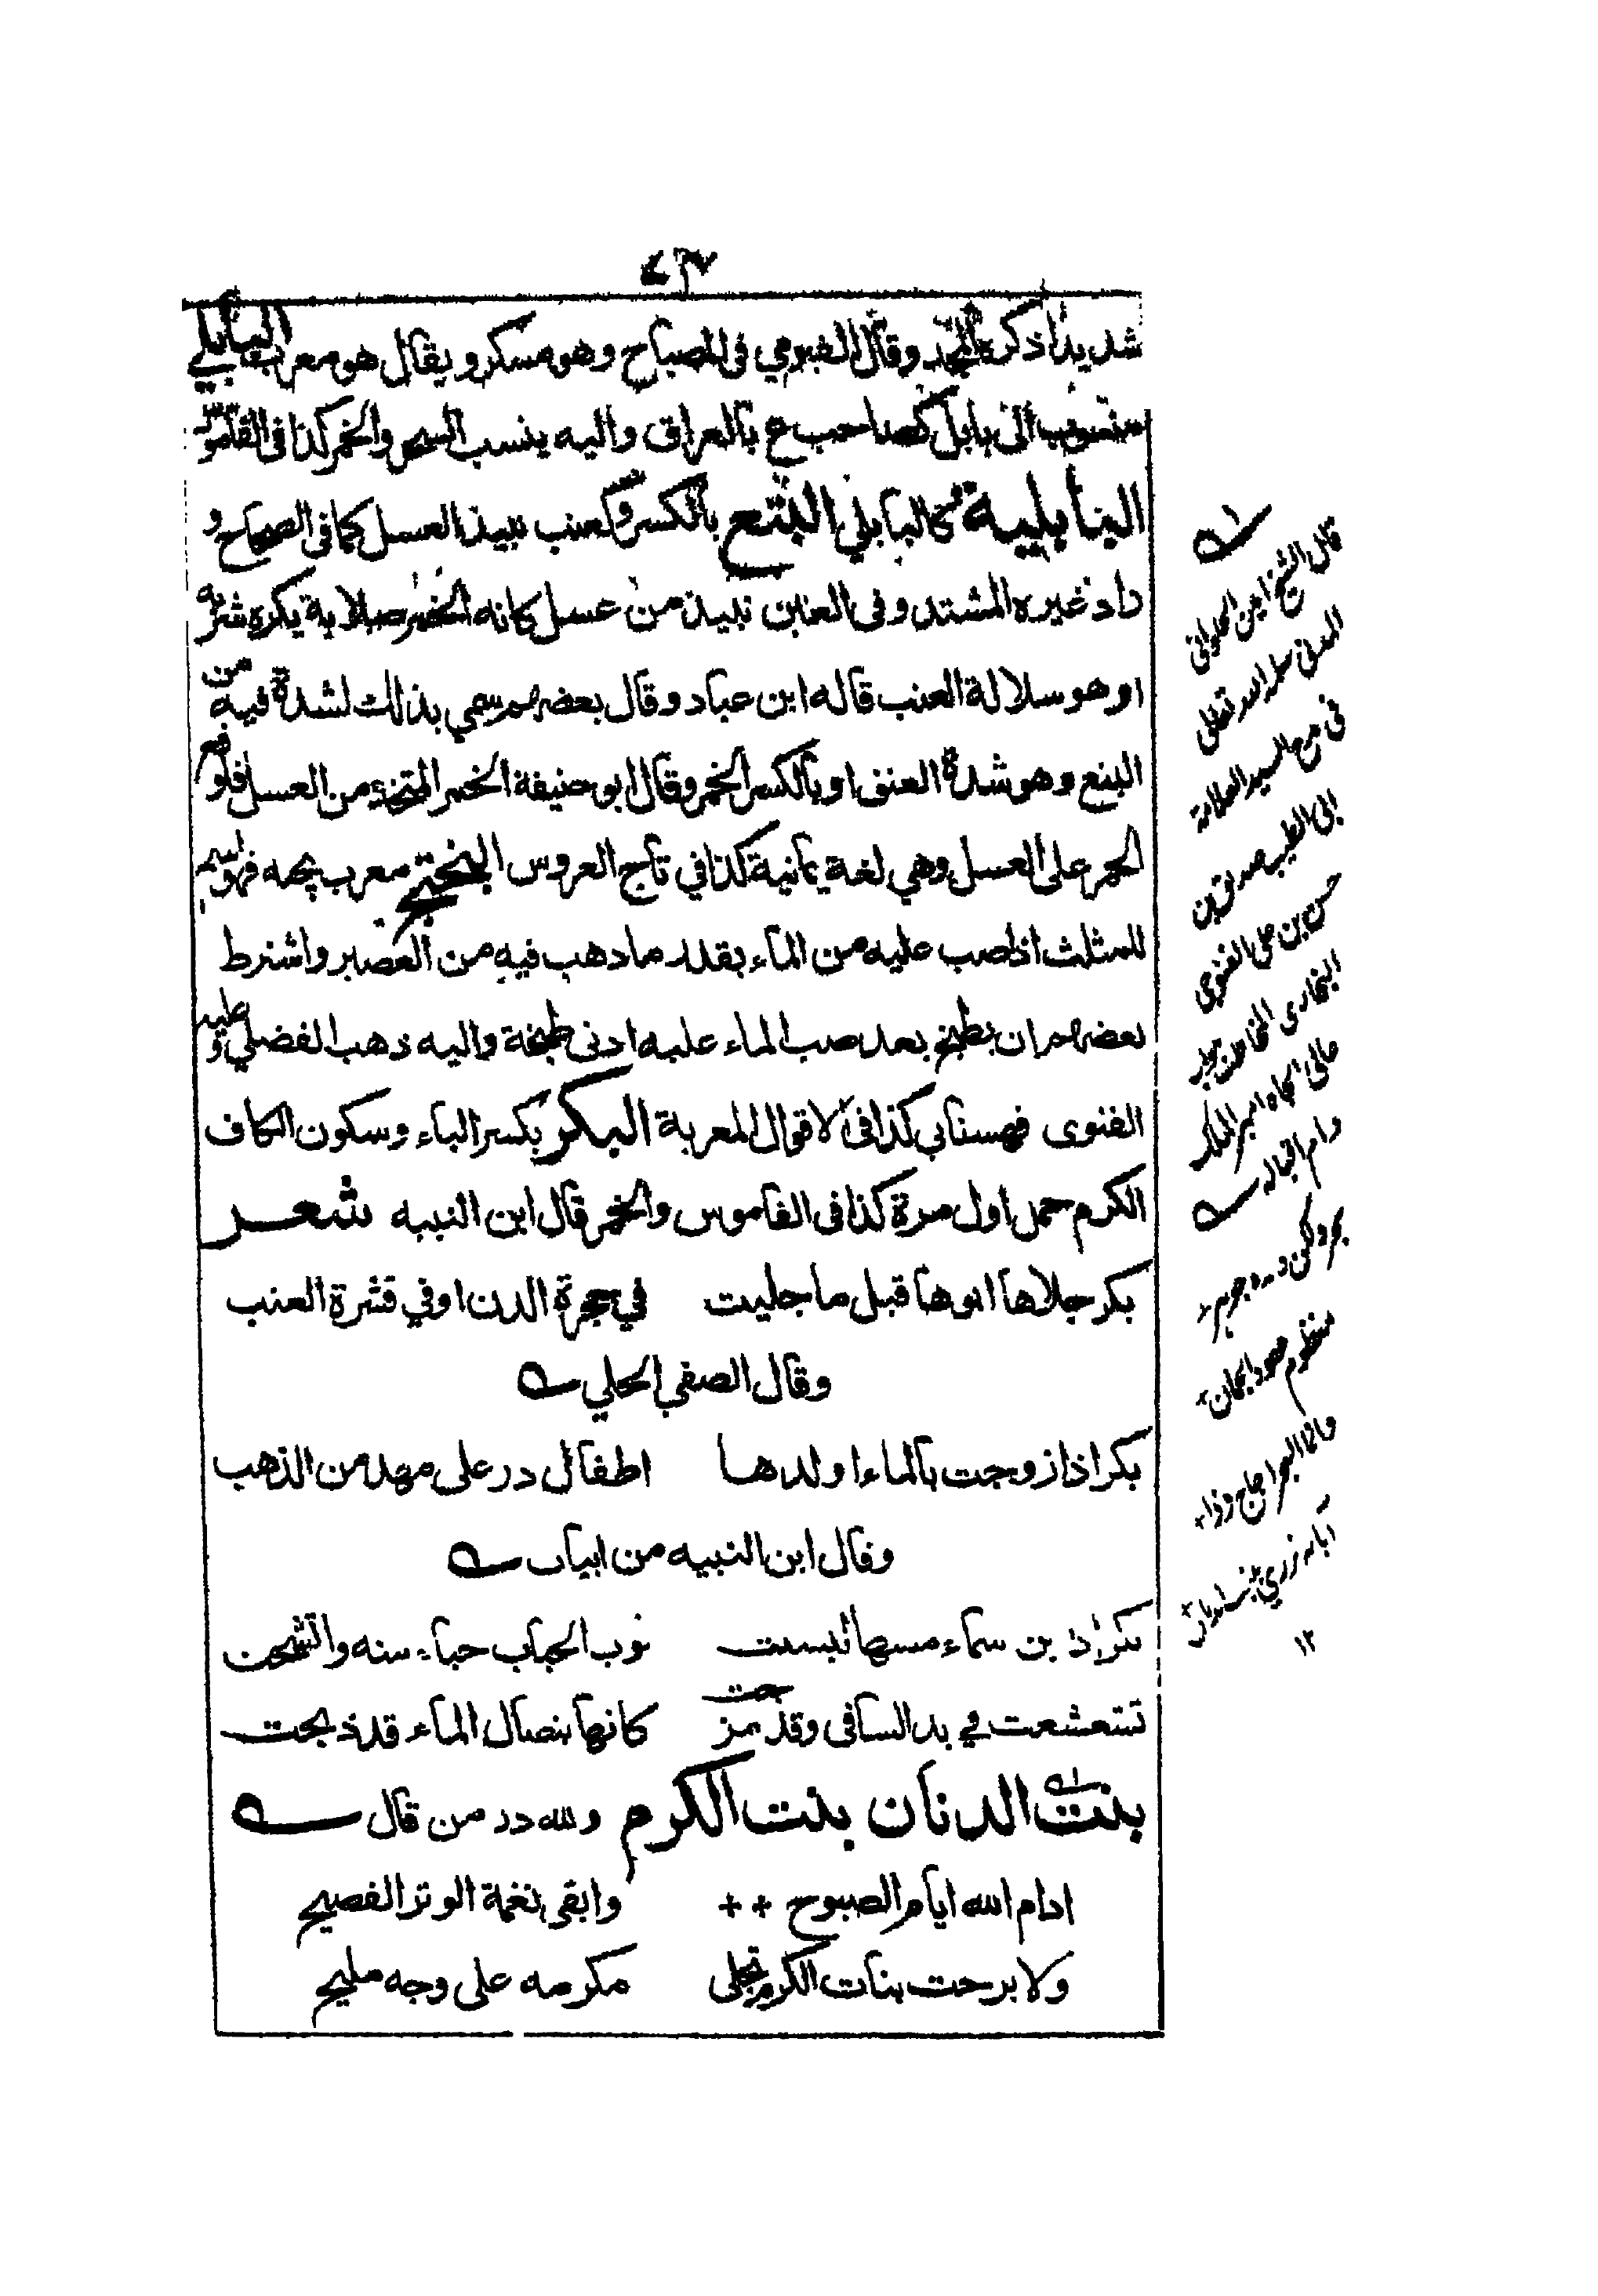 شديدا ذكره المجد وقال الفيومي في المصباح وهو مسكر ويقال هو معرب البابلي
منسوب الى بابل كصاحب ع بالعراق واليه ينسب السحر والخمر كذا في القاموس
البابلية كالبابلي البتع بالكسر وكعنب نبيذ العسل كما في الصحاح و
زاد غيره المشتد وفي العين نبيذ من عسل كانه الخمر صلابة يكره شربه
او هو سلالة العنب قاله ابن عباد وقال بعضهم سمي بذلك لشدة فيه من
البتع وهو شدة العنق او بالكسر الخمر وقال ابو حنيفة الخمر المتخذ من العسل فاوقع
الخمر على العسل وهي لغة يمانية كذا في تاج العروس البختج معرب پخته فهو اسم
للمثلث اذا صب عليه من الماء بقدر ما ذهب فيه من العصير واشترط
بعضهم ان يطبخ بعد صب الماء عليه ادنى طبخة واليه ذهب الفضلي وعليه
الفتوى قهستاني كذا في الاقوال المعربة البكر بكسر الباء وسكون الكاف
الكرم حمل اول مرة كذا في القاموس والخمر قال ابن النبيه شعر
بكر جلاها ابوها قبل ما جليت في حجرة الدن او في قشرة العنب
وقال الصفي الحلي
بكر اذا زوجت بالماء اولدها اطفال در على مهد من الذهب
وقال ابن النبيه من ابيات
بكر اذا بن سماء مسها لبست ثوب الحباب حياء منه واتشحت
تشعشعت في يد الساقي وقد مزجت كانها بنصال الماء قد ذبحت
بنت الدنان بنت الكرم ولله در من قال
ادام الله ايام الصبوح ++ وابقى نغمة الوتر الفصيح
ولا برحت بنات الكرم تجلى مكرمه على وجه مليح
قال الشيخ امين الحلواني
المدني سلمه الله تعالى
في مدح السيد العلامة
ابي الطيب صديق بن
حسن بن علي القنوجي
البخاري المخاطب
عالي الجاه امير الملك
دام اقباله
بحر ولكن
منظوم
١٢